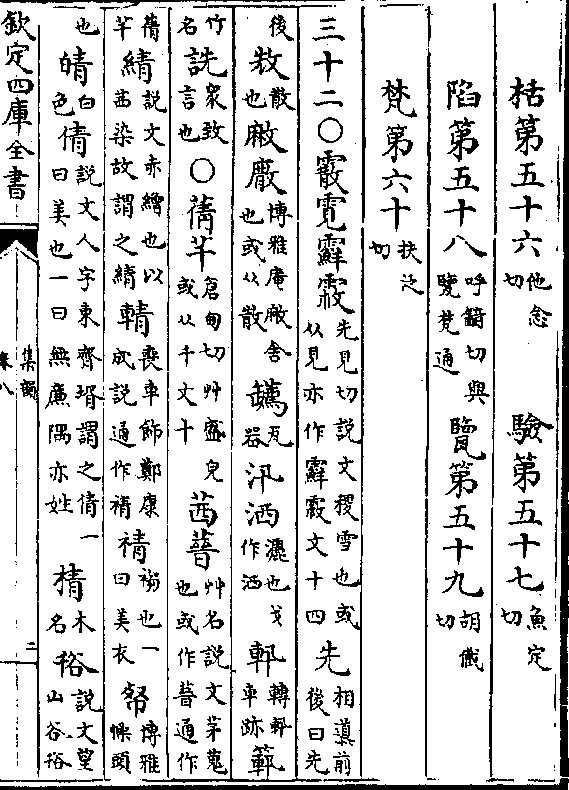 栝第五十六他念切 驗第五十七魚㝎切
陷第五十八呼韽切與䂄梵通 覽第五十九胡懺切
梵第六十扶泛切
三十二○霰霓䨷霰先見切説文稷雪也或从見亦作䨷霰文十四 先相導前後曰先
後 㪚散也 廒廄博雅庵廒舍也或从散 瓦器 汛洒灑也或作洒 軓轉軓車跡 範
竹名 詵衆致言也 ○蒨芊倉甸切艸盛皃或从千文十 茜蒨艸名説文茅蒐也或作蒨通作
蒨芊 綪説文赤繒也以茜染故謂之綪 輤喪車飾鄭康成説通作䄖 䄖䙰也一曰美衣 帑博雅幧頭
也 皘白色 倩説文人字東齊壻謂之倩一曰美也一曰無廉隅亦姓 棈木名 䜍説文望山谷䜍
欽定四庫全書
集韻
卷八
二